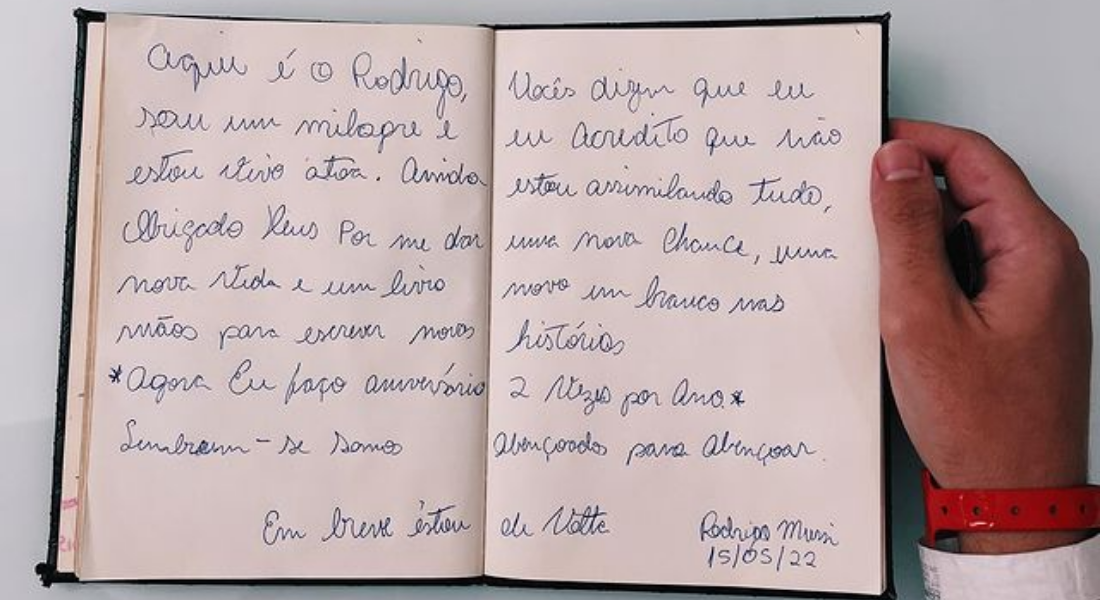 Aqui é o Rodrigo, Vocês dizem que eu
sou um milagre e eu acredito que não
estou vivo atoa. Ainda estou assimilando tudo,
Obrigado Deus Por me dar uma nova chance, uma
nova vida e um livro novo em branco nas
mãos para escrever novas histórias
*Agora Eu faço aniversário 2 Vezes por Ano.*
Lembrem-se somos abençoados para abençoar.
Em breve estou de Volta
Rodrigo Mussi
15/05/22